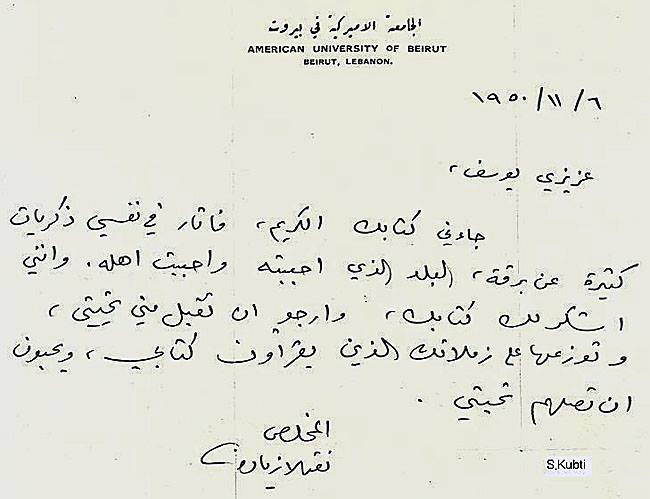 الجامعة الاميركية في بيروت
AMERICAN UNIVERSITY OF BEIRUT
BEIRUT, LEBANON.
١٩٥٠/١١/٦
عزيزي يوسف،
جاءني كتابك الكريم، فاثار في نفسي ذكريات
كثيرة عن برقة، البلد الذي احببته واحببت اهله. وانني
اشكر لك كتابك، وارجو ان تقبل مني تحيتي،
وتوزعها على زملائك الذين يقرأون كتابي، ويحبون
ان تصلهم تحيتي.
المخلص
نقولا زيادة
S.Kubti